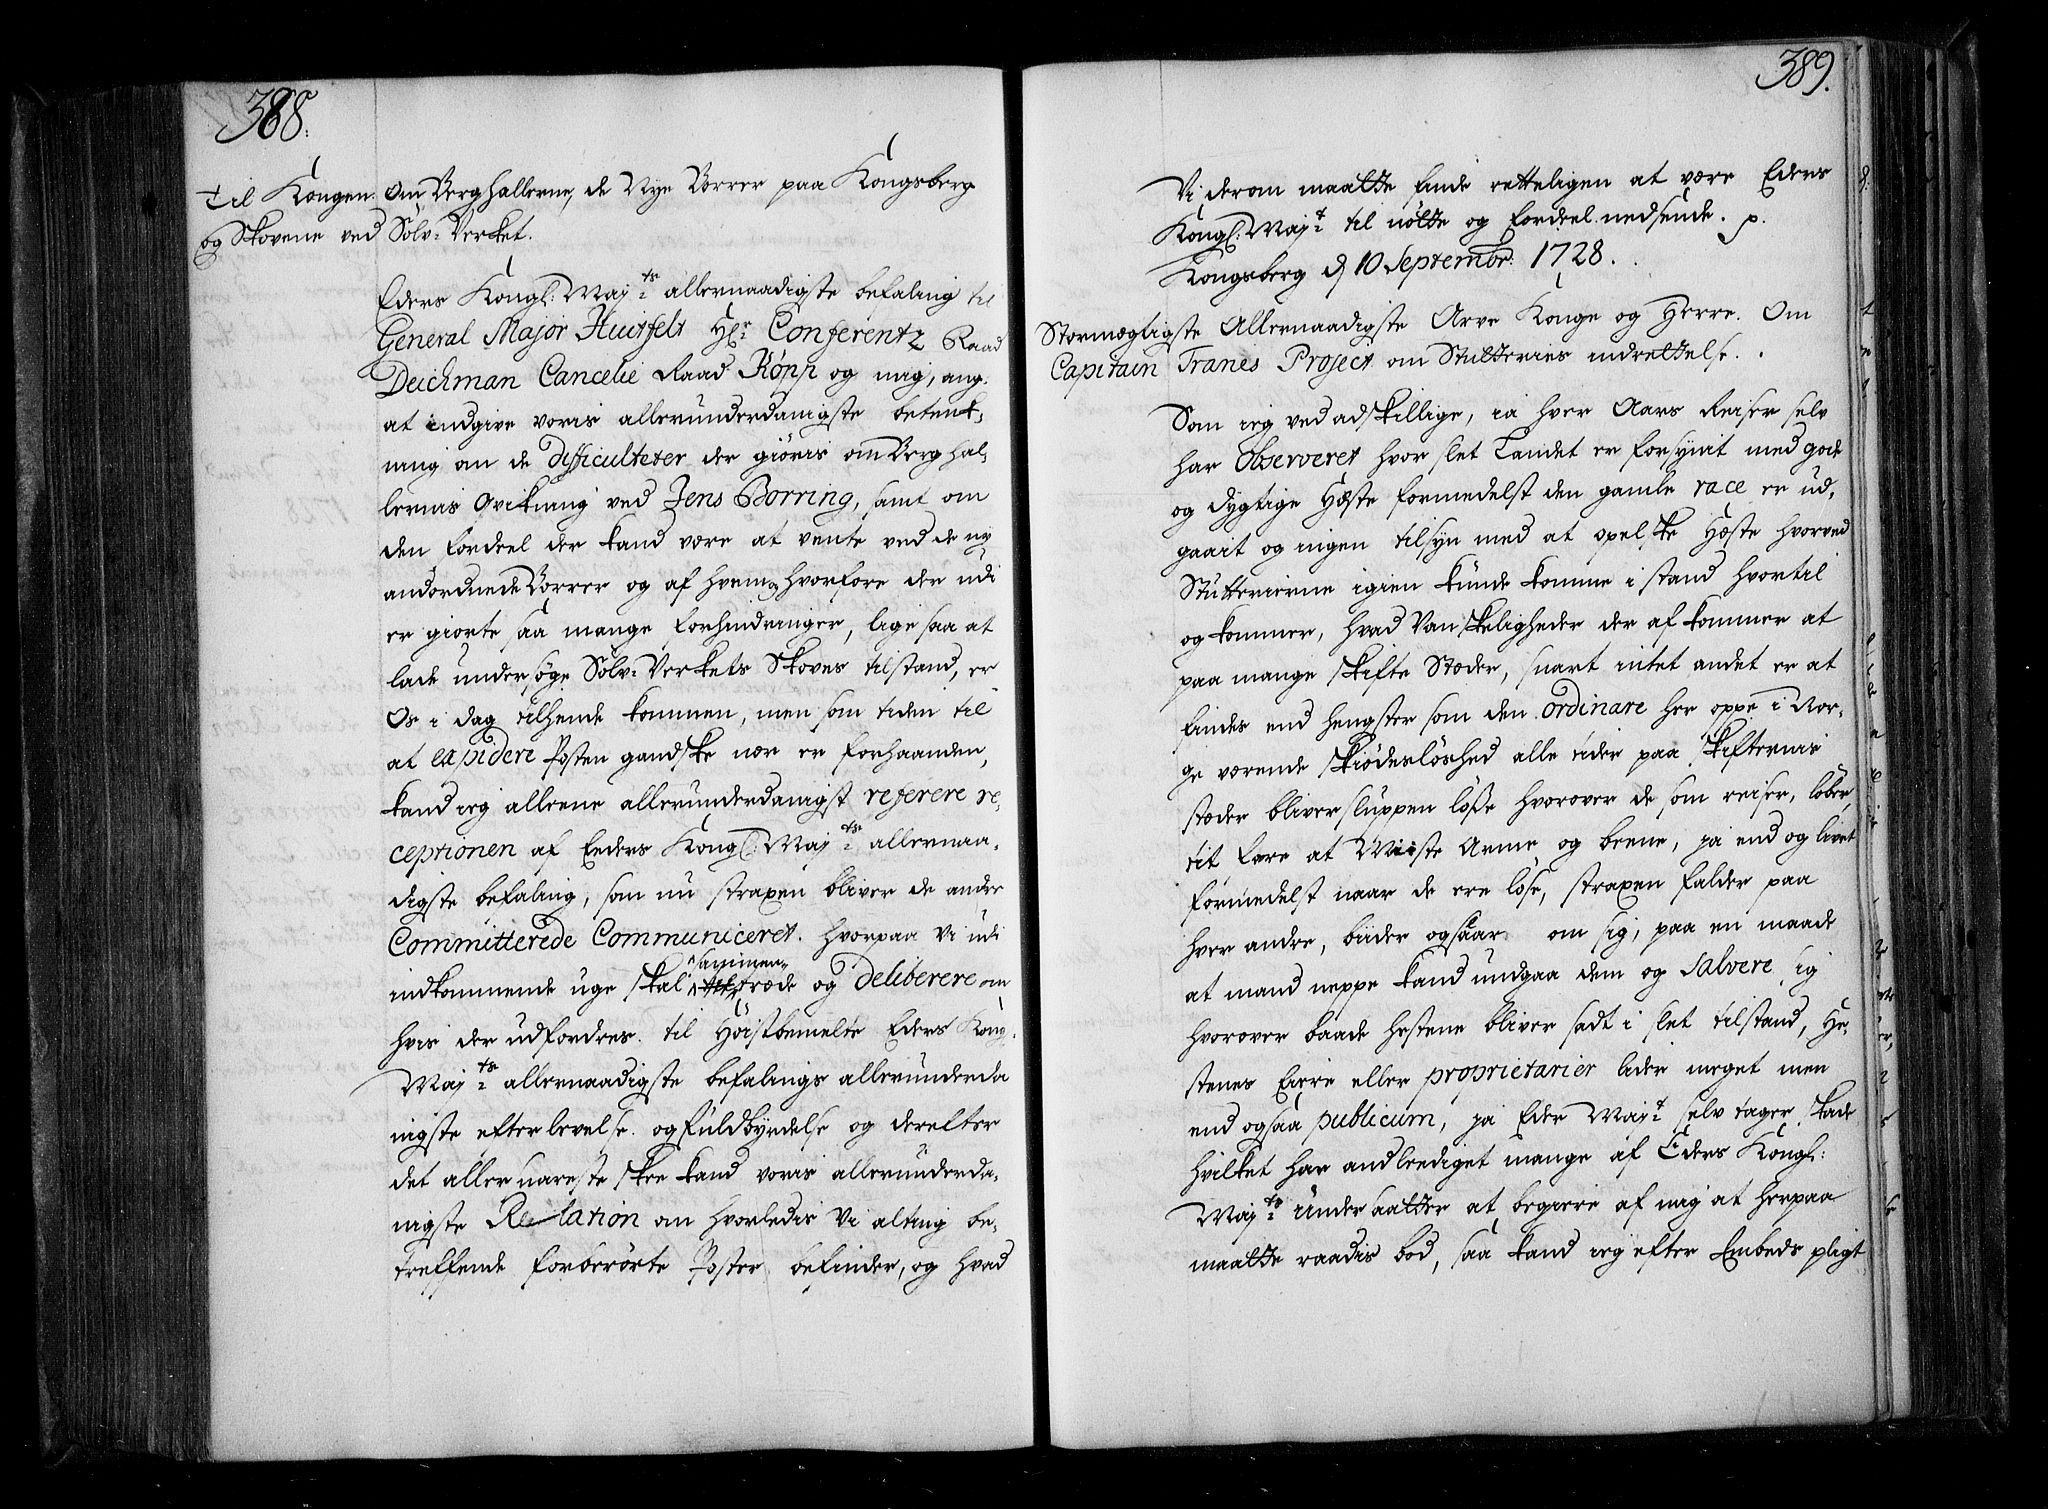 388.
Til Kongen. Om Berghallerne, de Nye Borrer paa Kongsberg
og Skovene ved Sølv-Verket.
Eders Kongl: Maj:ts allernaadigste befaling til
General Major Huitfelt Hr Conferentz Raad
Deichman Cancelie Raad Röpp og mig, ang:
at indgive voris allerunderdanigste betænk-
ning om de difficulteter der giøris om Berghal-
lernis qvikning ved Jens Borring, samt om
den fordeel der kand være at vente ved de ny
andordnede Borrer og af hvem og hvorfore der udi
er giorte saa mange forhindringer, lige saa at
lade undersøge Sølv-Verkets Skoves tilstand, er
Os i dag tilhende kommen, men som tiden til
at expidere Posten gandske nær er forhaanden,
kand ieg alleene allerunderdanigst referere re-
ceptionen af Eders Kongl: Maj:ts allernaa-
digste befaling, som nu strapen bliver de andre
Committerede Communiceret. hvorpaa Vi udi
indkommende uge skal sammen træde og deliberere om
hvis der udfordres til Høistbemelte Eders Kong:
Maj:ts allernaadigste befalings allerunderda
nigste efterlevelse og fuldbyrdelse og derefter
det allersnareste skee kand voris allerunderda-
nigste Relation om hvorledis Vi alting be-
treffende forberørte Poster befinder, og hvad
389.
Vi derom maatte finde retteligen at være Eders
Kongl: Maj:t til nötte og fordeel nedsende. p.
Kongsberg d 10 Septembr: 1728.
Stormægtigste Allernaadigste Arve Konge og Herre. Om
Capitain Tranes Project om Stutteries indrettelse.
Som ieg ved adskillige, ia hver Aars Reiser selv
har Observeret hvor slet Landet er forsynit med gode
og dygtige Hæste formedelst den gamle race er ud-
gaait og ingen tilsyn med at opelske Hæste hvorved
Stutterierne igien kunde komme i stand hvortil
og kommer, hvad Vanskeligheder der af kommer at
paa mange skifte Stæder, snart intet andet er at
findes end hengster som den ordinare her oppe i Nor-
ge værende skiødesløshed alle tider paa skifternis
stæder bliver sluppen løse hvorover de som reiser, løber
tit fare at Miste Arme og beene, ja end og livet
formedelst naar de ere løse, strapen falder paa
hver andre, biider og saar om sig, paa en maade
at mand neppe kand undgaa dem og salvere sig
hvorover baade hestene bliver sadt i slet tilstand, He-
stenes Eiere eller proprietarier lider meget men
end ogsaa publicum, ja Eder Maj:t selv tager skade
hvilket har andleediget mange af Eders Kongl:
Maj:ts Undersaatter at begiere af mig at herpaa
maatte raadis bod, saa kand ieg efter Embeds pligt